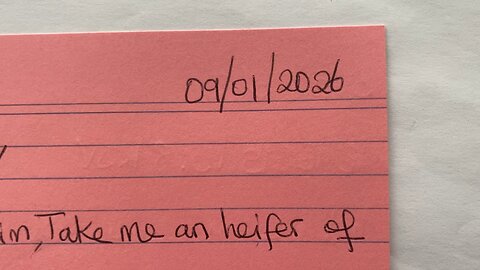 09/01/2026
im, Take me an heifer of